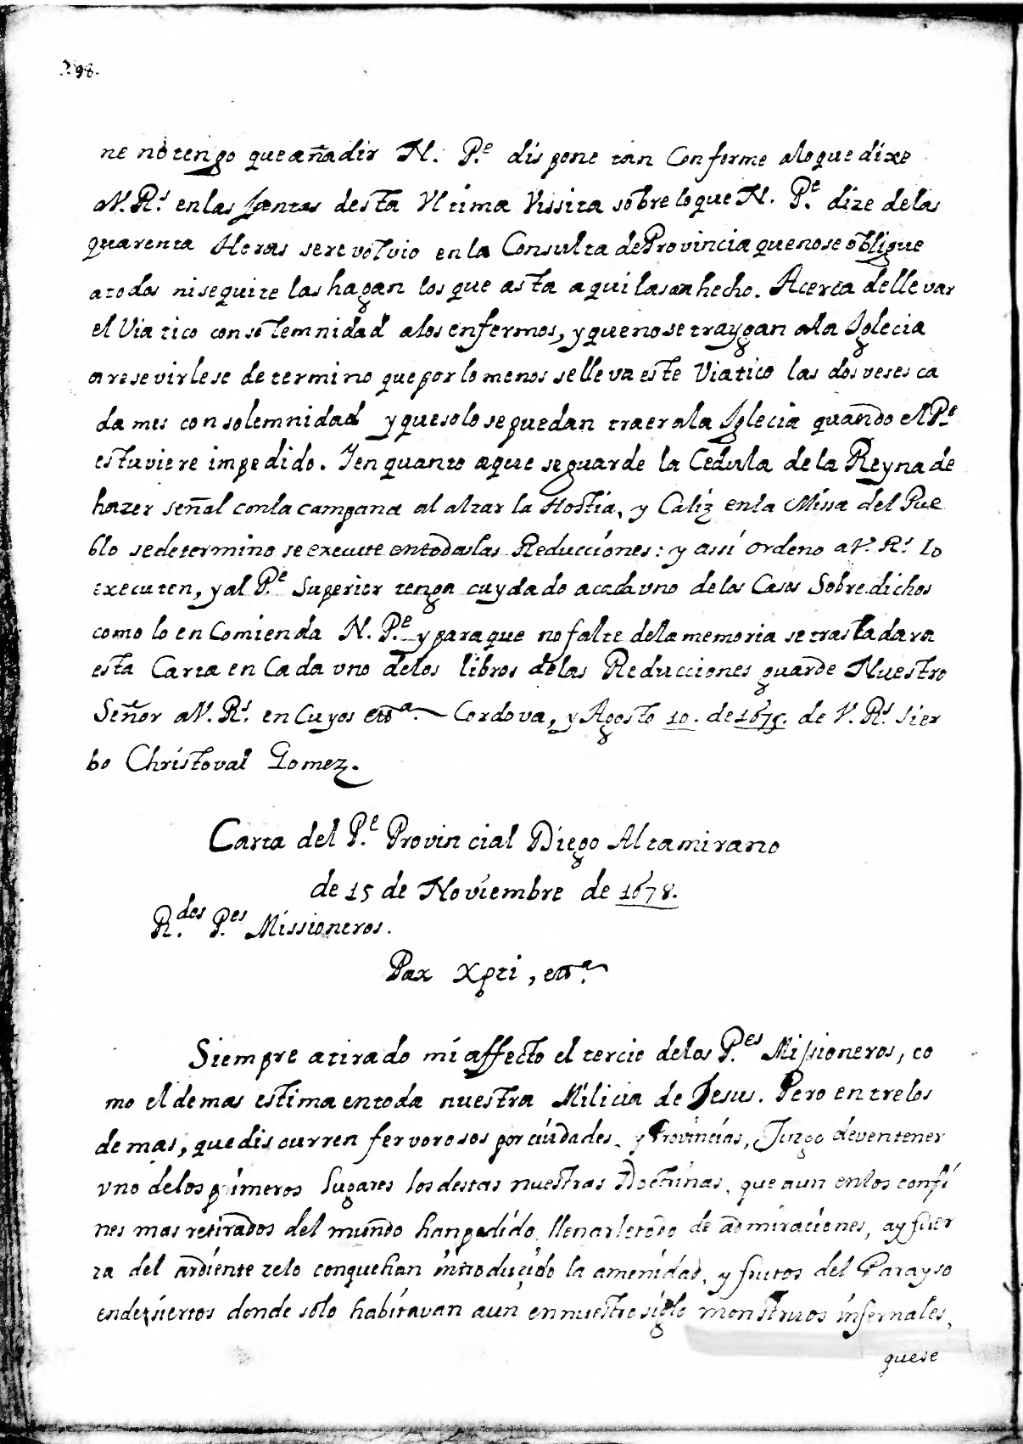 298.
ne no tengo que añadir N. P.e dispone tan Conforme alo que dixe
a V. R.s en las Juntas desta Vltima Vissita sobre lo que N. P.e dize de las
quarenta Horas se resolvio en la Consulta de Provincia que no se obligue
a todos ni se quite las hagan los que asta aqui las an hecho. Acerca de llevar
el Viatico con solemnidad a los enfermos, y que no se traygan a la Iglecia
a resevirle se determino que por lo menos se lleva este Viatico las dos veses ca
da mes con solemnidad y que solo se puedan traer a la Iglecia quando el P.e
estuviere impedido. Y en quanto a que se guarde la Cedula de la Reyna de
hazer señal con la campana al alzar la Hostia, y Caliz en la Missa del Pue
blo se determino se execute en todas las Reducciones: y assi ordeno a V.s R.s lo
executen, y al P.e Superior tenga cuydado a cada vno de los Casos Sobredichos
como lo en Comienda N. P.e y para que no falte de la memoria se trasladara
esta Carta en Cada vno de los libros de las Reducciones guarde Nuestro
Señor a V. R.s en Cuyos etta. Cordova, y Agosto 10. de de V. R.s Sier
bo Christoval Gomez.
Carta del P.e Provincial Diego Altamirano
de 15 de Noviembre de 1678.
R.des P.es Missioneros.
Pax Xpti, etta.
Siempre a tirado mi affecto el tercio de los P.es Missioneros, co
mo el de mas estima en toda nuestra Milicia de Jesus. Pero entre los
demas, que discurren fervorosos por ciudades, y Provincias, Juzgo deven tener
vno de los primeros lugares los destas nuestras Doctrinas, que aun en los confi
nes mas retirados del mundo han podido llenarle todo de admiraciones, a fuer
za del ardiente zelo con que han introducido la amenidad, y frutos del Parayso
en deziertos donde solo habitavan aun en nuestro siglo monstruos infernales,
quese